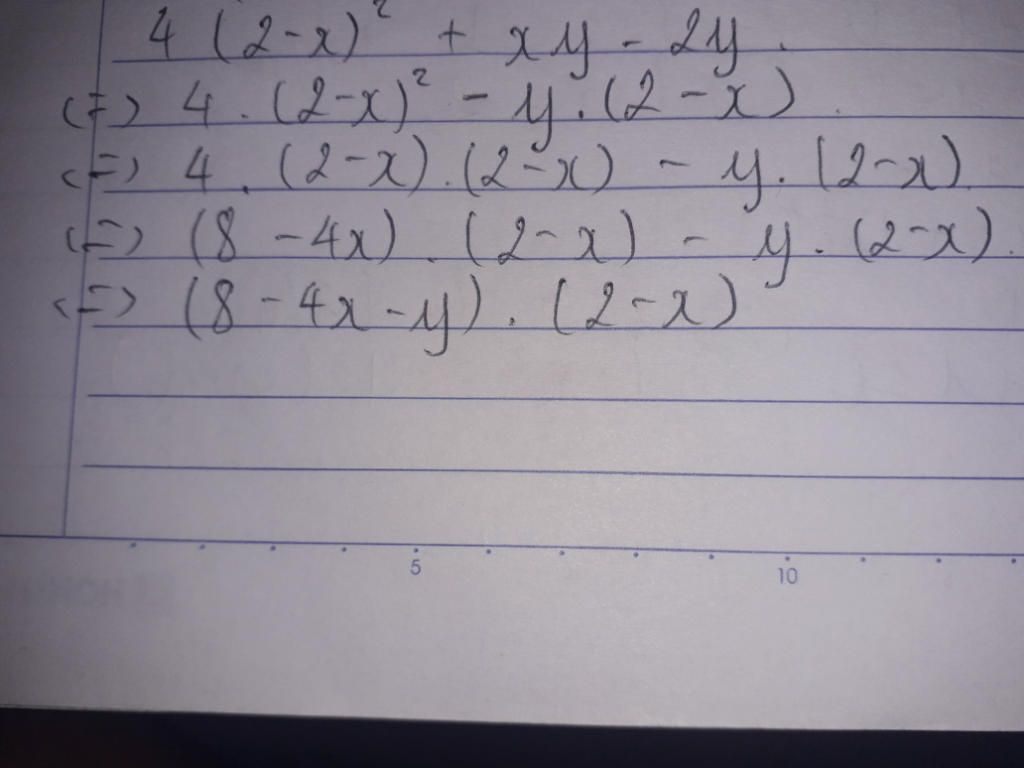 4 (2-x)² + xy - 2y.
<=> 4 . (2-x)² - y.(2-x).
<=> 4 . (2-x).(2-x) - y. (2-x).
<=> (8 - 4x) . (2-x) - y. (2-x).
<=> (8 - 4x - y) . (2-x)
5 10